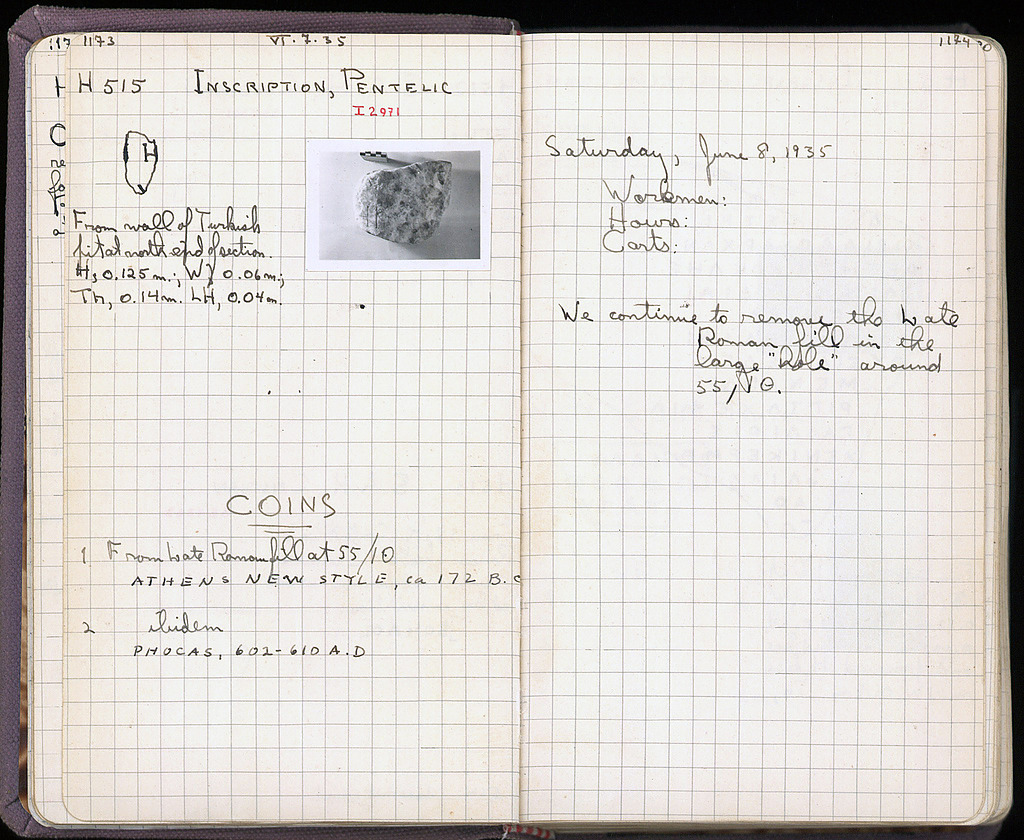 1173 VI.7.35
H 515 INSCRIPTION, PENTELIC
I 2971
H
From wall of Turkish
pit at north end of section.
H, 0.125 m.; W, 0.06 m.;
Th, 0.14 m. LH, 0.04 m.
COINS
1 From Late Roman fill at 55/ΙΘ
ATHENS NEW STYLE, ca 172 B.C
2 ibidem
PHOCAS, 602-610 A.D
1174
Saturday, June 8, 1935
Workmen:
Hours:
Carts:
We continue to remove the Late
Roman fill in the
large "hole" around
55/ΙΘ.